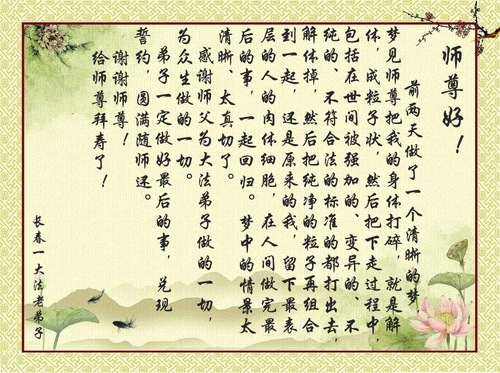 师尊好！
前两天做了一个清晰的梦
梦见师尊把我的身体打碎，就是解
体，成粒子状，然后把下走过程中
包括在世间被强加的、变异的、不
纯的、不符合法的标准的都打出去，
解体掉，然后把纯净的粒子再组合
到一起，还是原来的我，留下最表
层的人的肉体细胞，在人间做完最
后的事，一起回归。梦中的情景太
清晰、太真切了。
感谢师父为大法弟子做的一切，
为众生做的一切。
弟子一定做好最后的事，兑现
誓约，圆满随师还。
谢谢师尊！
给师尊拜寿了！
长春一大法老弟子